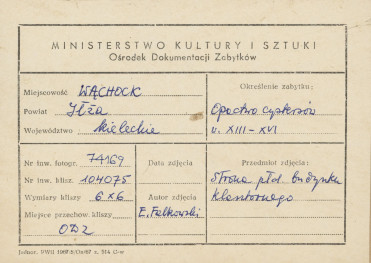 MINISTERSTWO KULTURY I SZTUKI
Ośrodek Dokumentacji Zabytków
Miejscowość WĄCHOCK
Powiat Iłża
Województwo kieleckie
Określenie zabytku:
Opactwo cystersów
w. XIII-XVI
Nr inw. fotogr. 74169
Nr inw. klisz. 104075
Wymiary kliszy 6x6
Miejsce przechow. kliszy
ODZ
Data zdjęcia
Autor zdjęcia
E. Falkowski
Przedmiot zdjęcia:
Strona płd. budynku
klasztornego